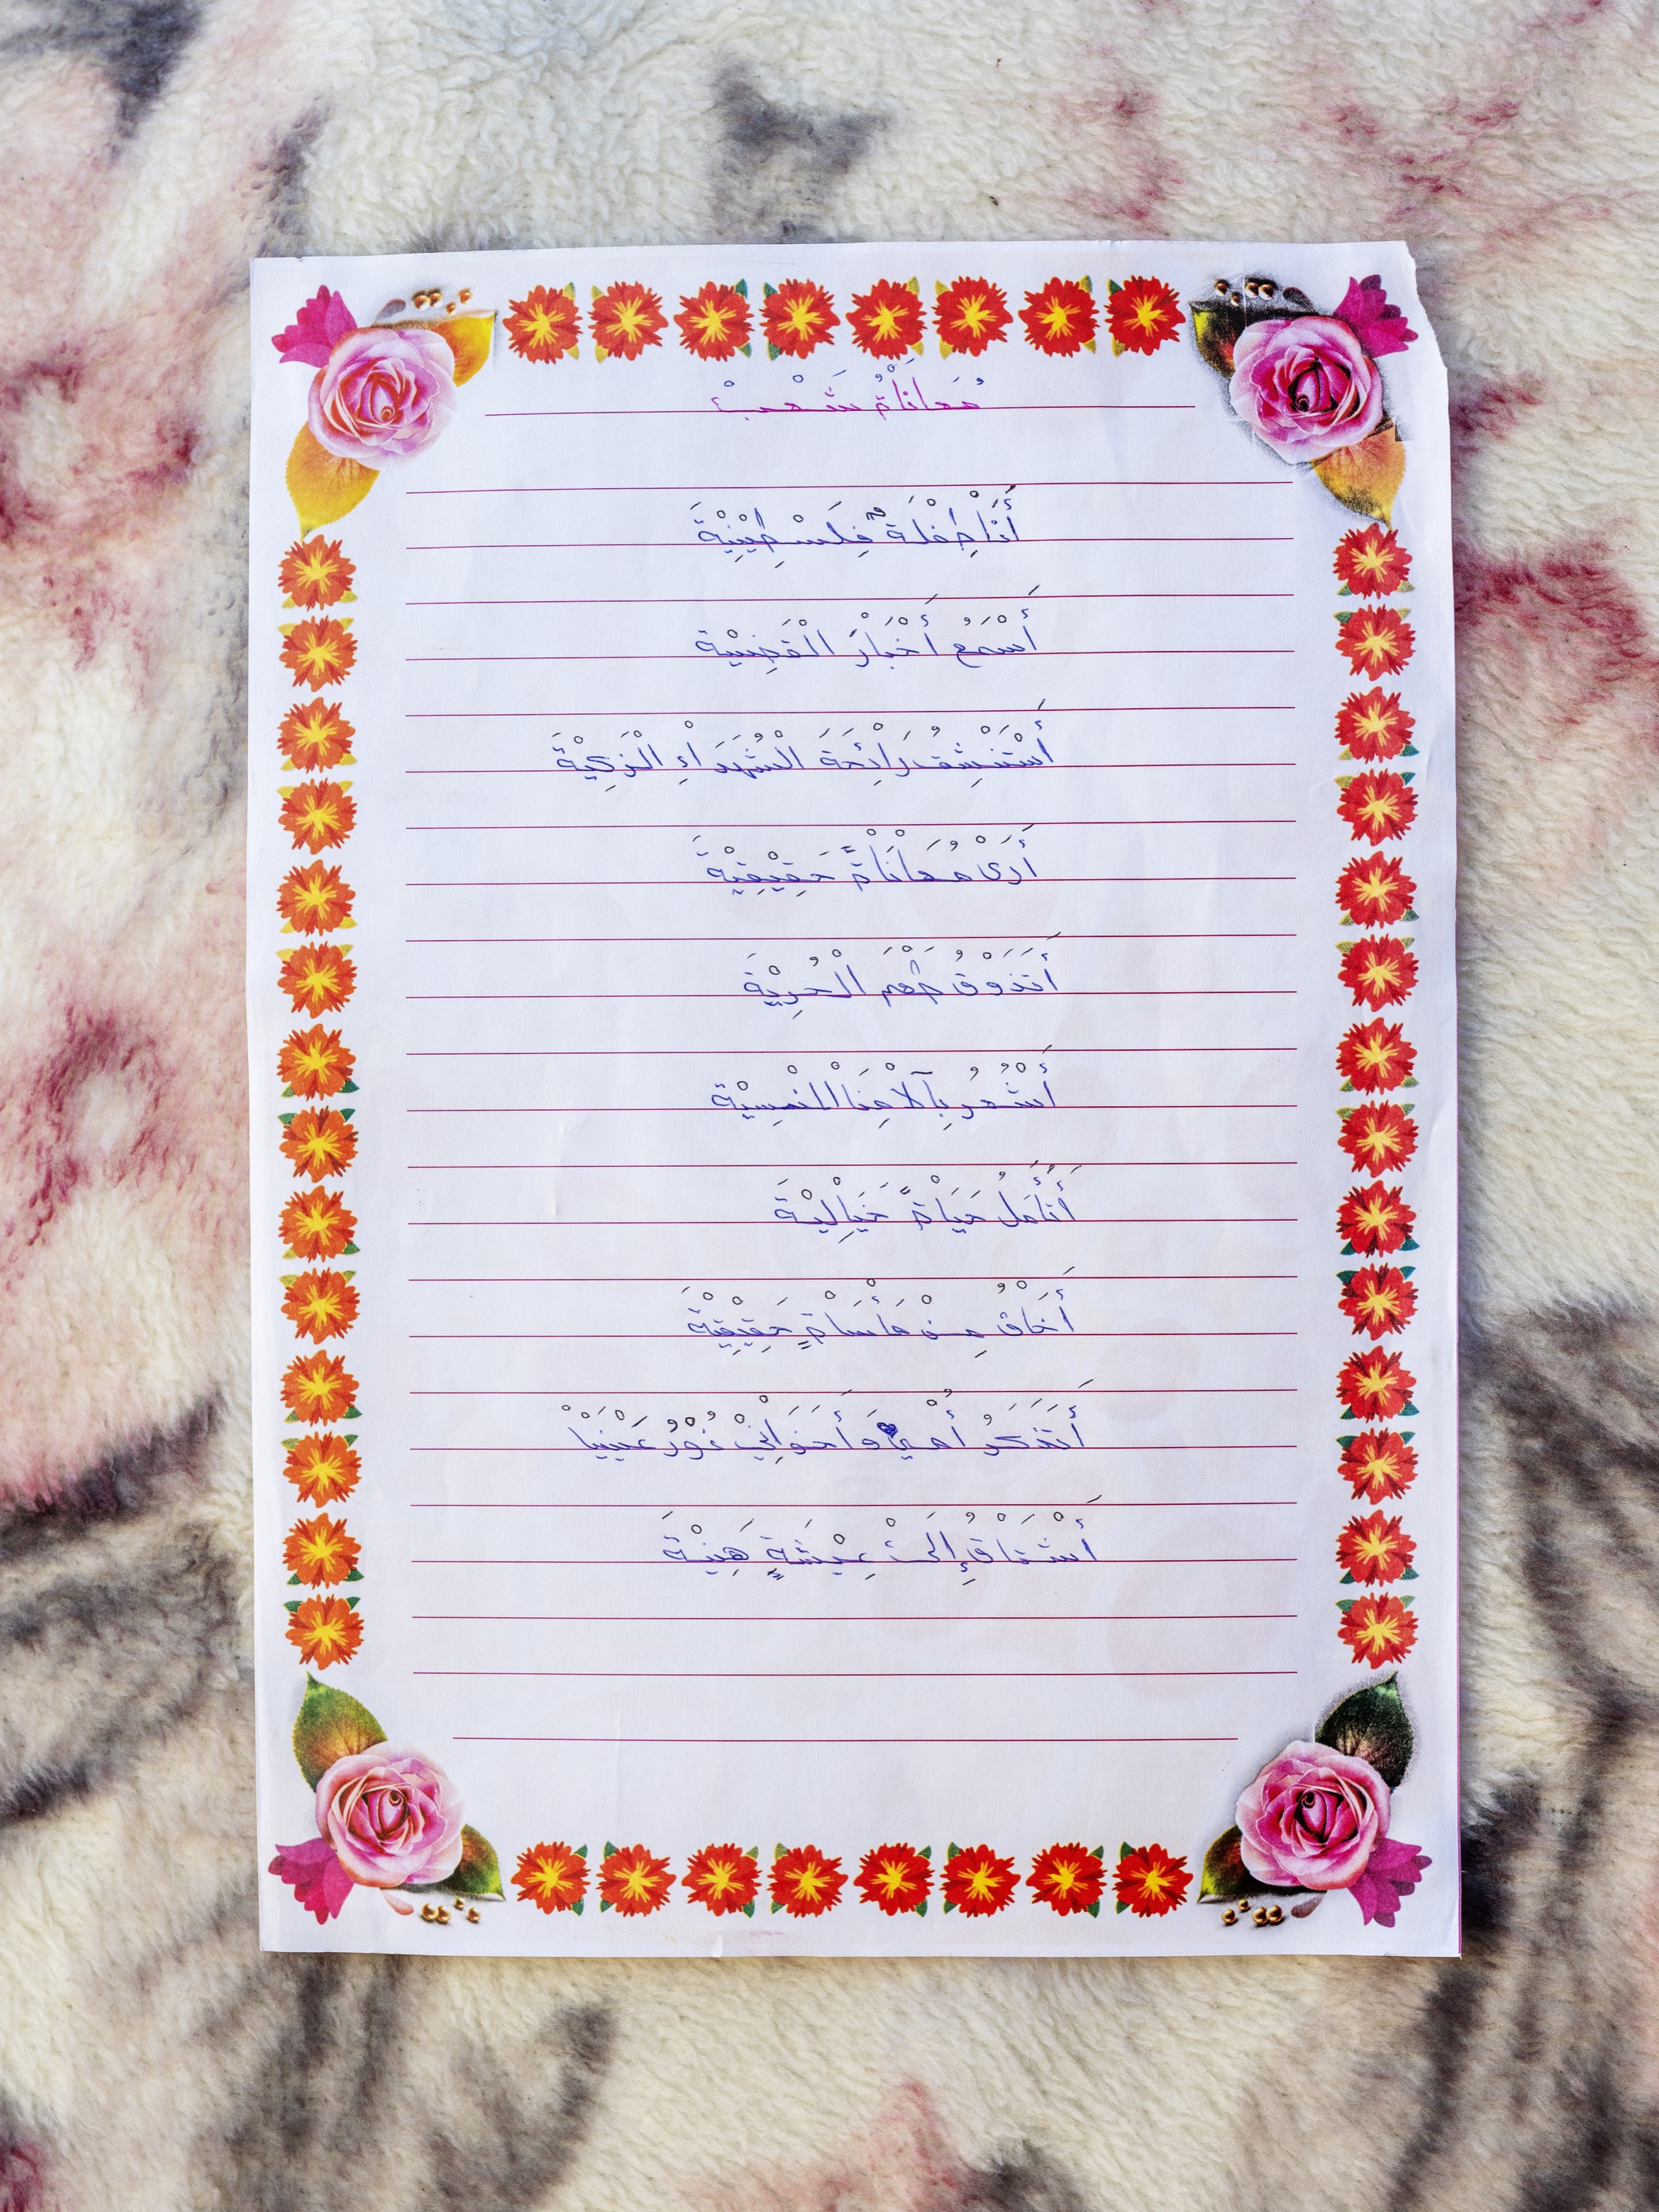 مُعَانَاةُ شَعْبْ
أَنَا طِفْلَةٌ فِلَسْطِيْنِيْةَ
أَسْمَعُ أَخْبَارَ الْقَضِيْةَ
أَسْتَنْشِقُ رَائِحَةَ الْشُهَدَاءِ الْزَكِيْةَ
أَرَى مُعَانَاةً حَقِيْقِيْةَ
أَتَذَوَقُ طَعْمَ الْحُرِيْةَ
أَشْعُرُ بِآلَامِنَا الْنَفْسِيْةَ
أَتَأَمَلُ حَيَاةً خَيَالِيْةَ
أَخَافُ مِنْ مَأْسَاةٍ حَقِيْقِيْةَ
أَتَذَكَرُ أُمْيْ وَ أَخَوَاتِيْ نُوْرُ عَيْنَيْا
أَشْتَاقُ إِلَىْ عِيْشَةٍ هَنِيْةَ